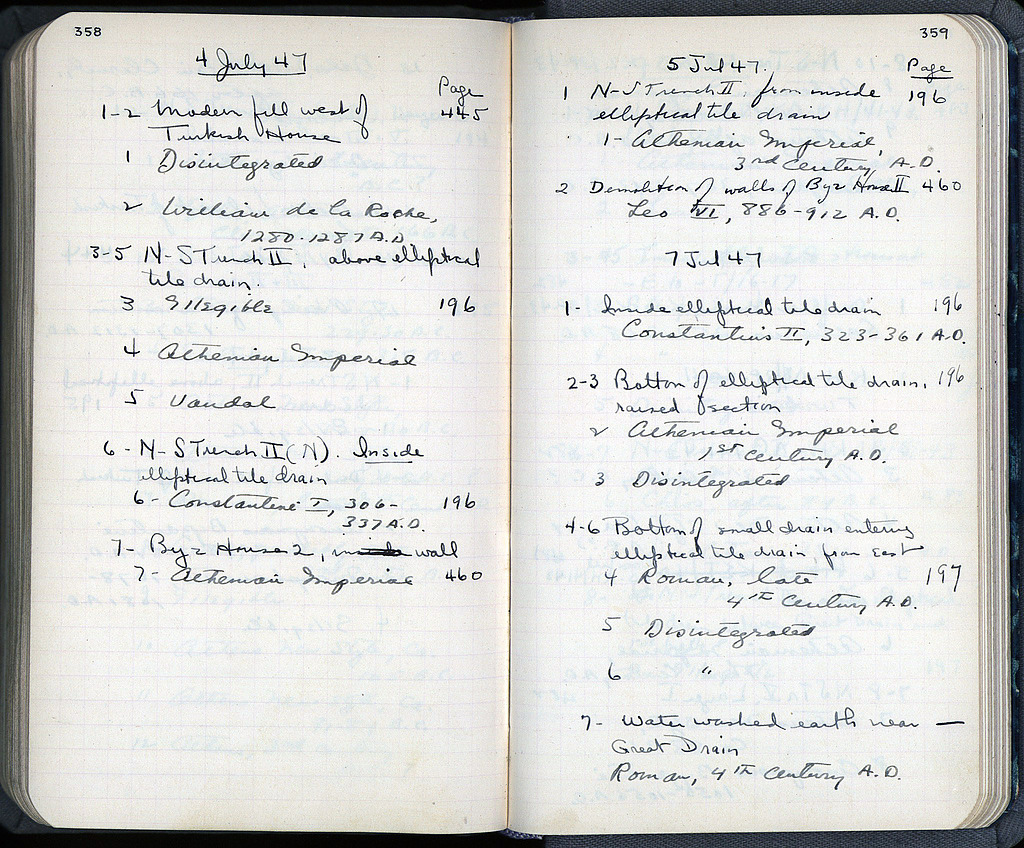 358
4 July 47
Page
1-2 Modern fill west of 445
Turkish House
1 Disintegrated
2 William de la Roche,
1280-1287 A.D.
3-5 N-S Trench II, above elliptical
tile drain.
3 Illegible 196
4 Athenian Imperial
5 Vandal
6- N-S Trench II (N). Inside
elliptical tile drain
6- Constantine I, 306- 196
337 A.D.
7- Byz House 2, in wall
7- Athenian Imperial 460
359
5 Jul 47. Page
1 N-S Trench II, from inside 196
elliptical tile drain
1- Athenian Imperial,
3rd Century, A.D.
2 Demolition of walls of Byz House II 460
Leo VI, 886-912 A.D.
7 Jul 47
1- Inside elliptical tile drain 196
Constantius II, 323-361 A.D.
2-3 Bottom of elliptical tile drain, 196
raised section
2 Athenian Imperial
1st Century A.D.
3 Disintegrated
4-6 Bottom of small drain entering
elliptical tile drain, from East
4 Roman, late 197
4th Century A.D.
5 Disintegrated
6 "
7- Water washed earth near —
Great Drain
Roman, 4th Century A.D.